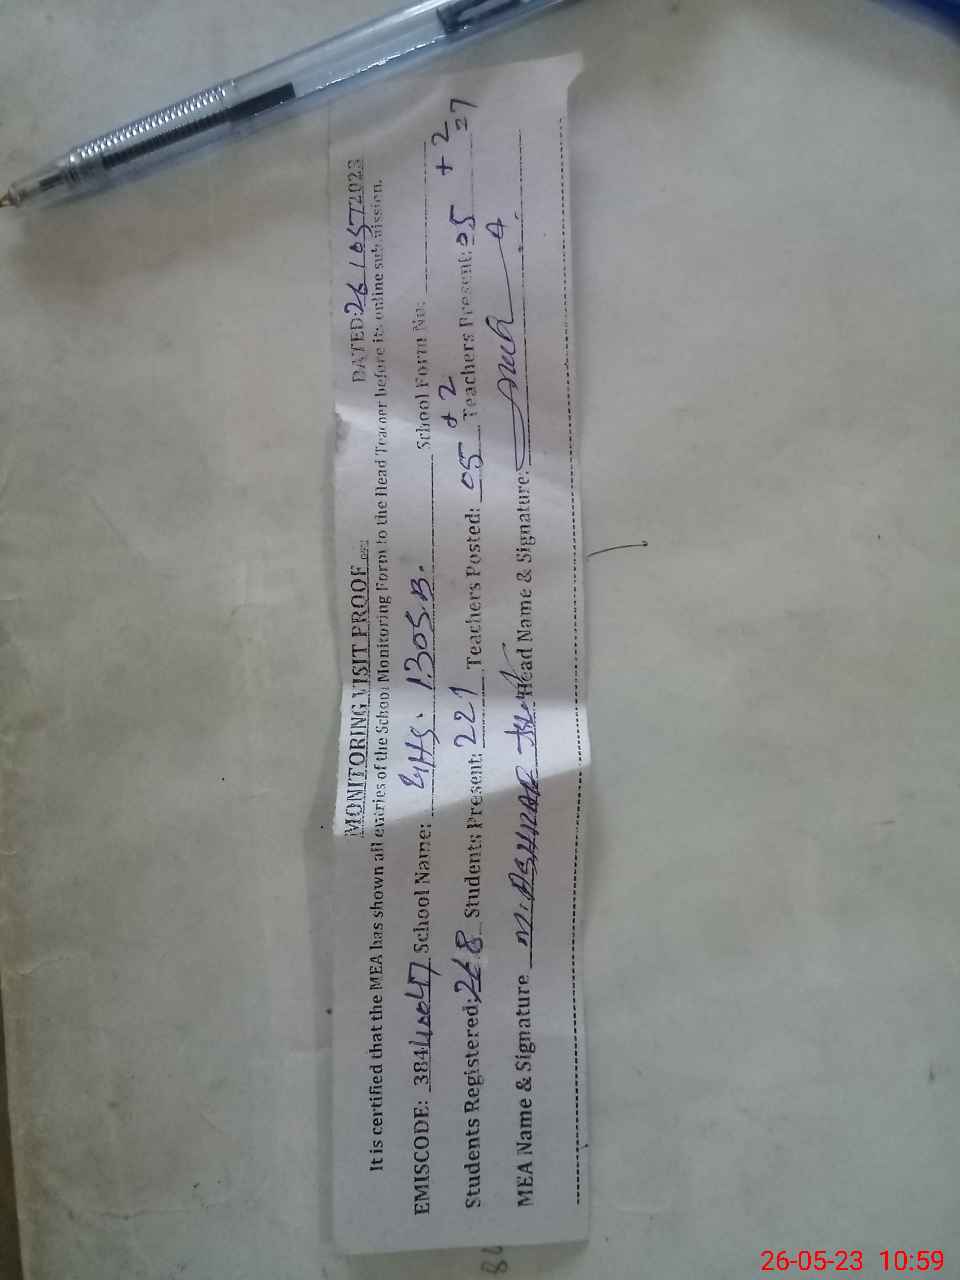 MONITORING VISIT PROOF DATED: 26/05/2023
It is certified that the MEA has shown all entries of the School Monitoring Form to the Head Teacher before its online submission.
EMISCODE: 38440047 School Name: GHS. 130S.B. School Form No:
Students Registered: 268 Students Present: 221 Teachers Posted: 05 + 2 Teachers Present: 05 + 2
MEA Name & Signature M. ASHRAF Head Name & Signature:
26-05-23 10:59